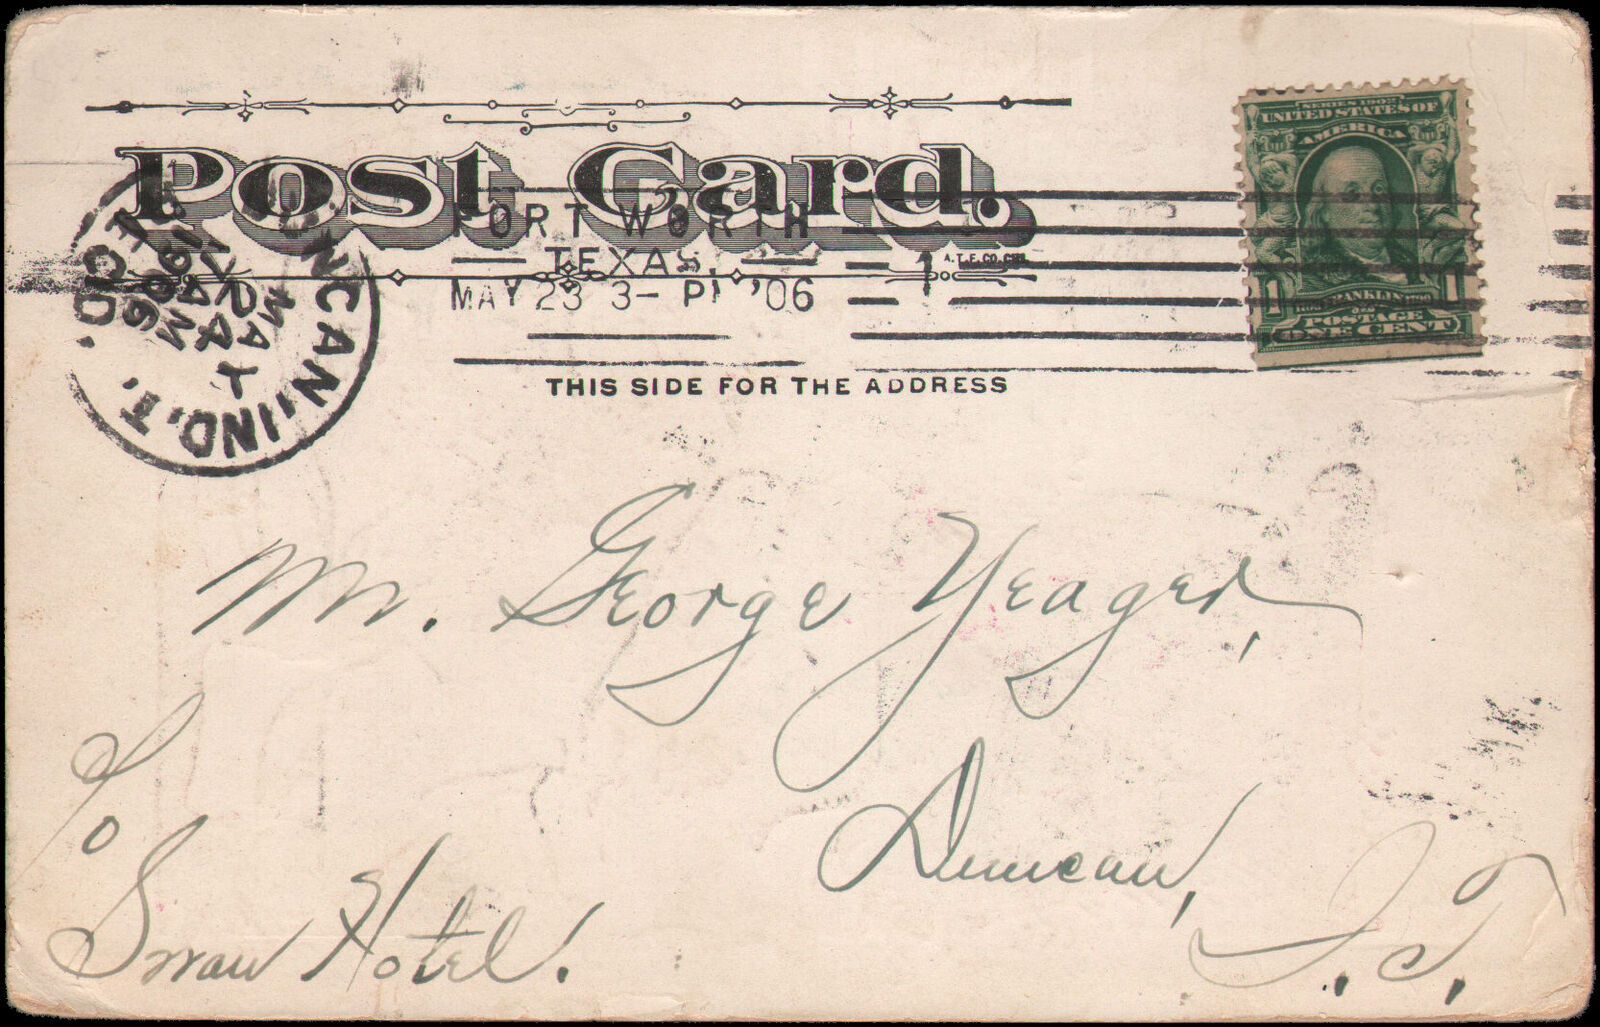 Post Card.
A.T.F. CO. CHI.
FORT WORTH
TEXAS.
MAY 23 3- P '06
THIS SIDE FOR THE ADDRESS
SERIES 1902
UNITED STATES OF
AMERICA
1 1
FRANKLIN
POSTAGE
ONE CENT
NCAN, IND, T,
MAY
24
1906
REC'D.
Mr. George Yeager,
Duncan,
I. T.
c/o
Hotel.